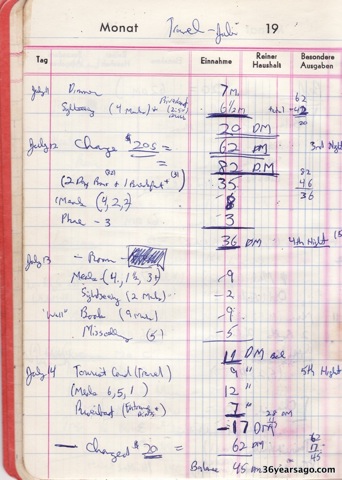 Monat Travel - Juli 19
Tag Einnahme Reiner Haushalt Besondere Ausgaben
July 11 Dinner 7 M
Sightseeing (4 Marks) + Breakfast (2.50) 6 1/2 M 62
total - 42
20 DM 20
July 12 Change $ 20s = 62 DM 3rd Night
= 82 DM 82
(2 Day + 1 Breakfast + 35 46
Meals (4, 2, 2) - 8 36
Phone - 3 - 3
36 DM 4th Night
July 13 - Room -
Meals (4, 1 1/2, 3 -9
Sightseeing (2 Marks) -2
"Wall" Book (9 Marks) -9
Miscellany (5) -5
11 DM bal
July 14 Tourist Card (Travel) 9 " 5th Night
(Meals 6, 5, 1) 12 "
7 " 28 DM
-17 DM
- Changed $ 20 = 62 DM 62
17
45
Balance 45 DM
36yearsago.com